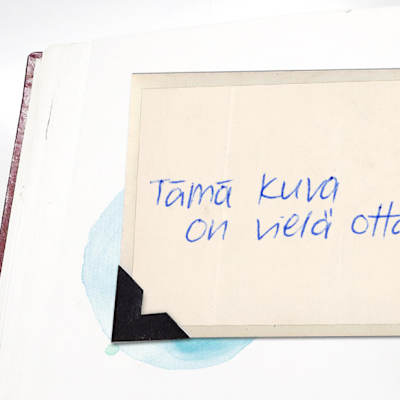 Tämä kuva
on vielä otta